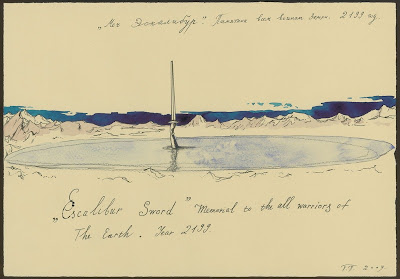 „Меч Эскалибур". Памятник всем воинам Земли. 2199 год
„Escalibur Sword" Memorial to the all warriors of
The Earth. Year 2199
TT 2009